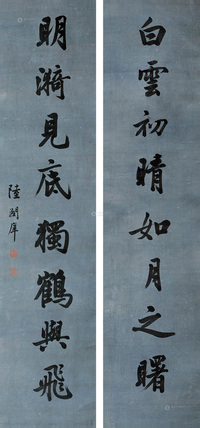 白雲初晴如月之曙
明漪見底獨鶴與飛
陸潤庠